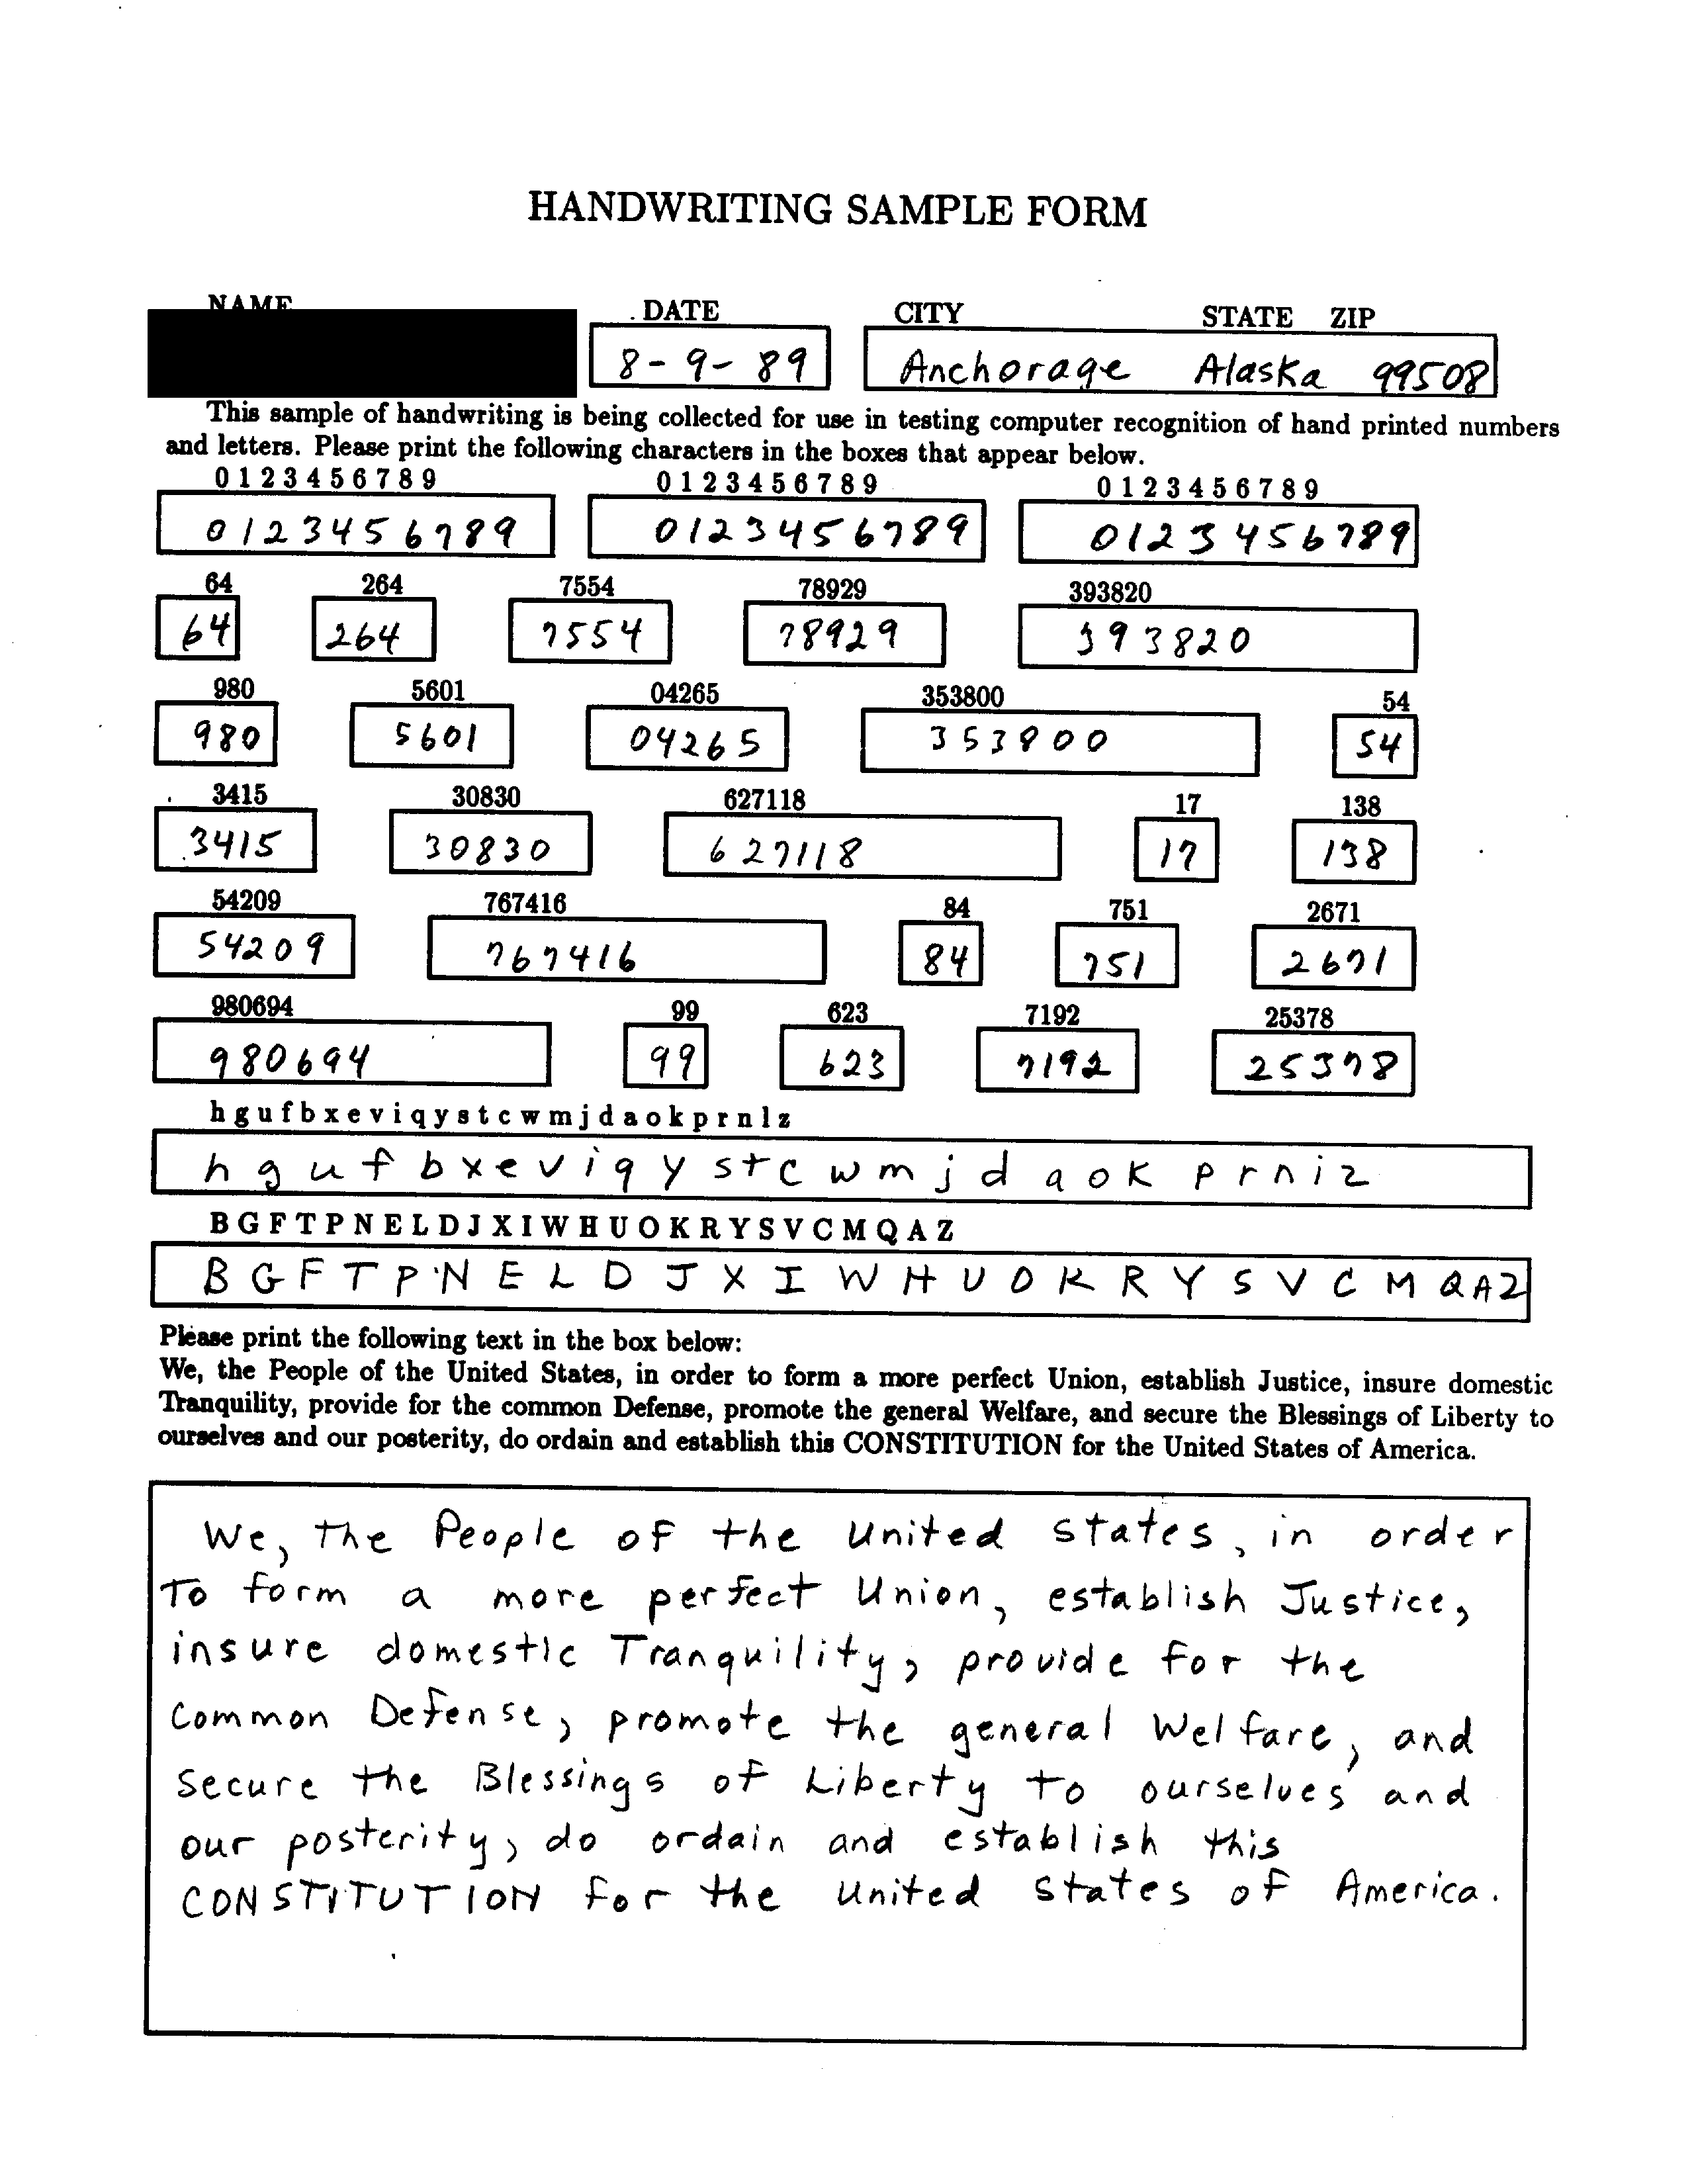 HANDWRITING SAMPLE FORM
NAME DATE CITY STATE ZIP
8-9-89 Anchorage Alaska 99508
This sample of handwriting is being collected for use in testing computer recognition of hand printed numbers
and letters. Please print the following characters in the boxes that appear below.
0 1 2 3 4 5 6 7 8 9 0 1 2 3 4 5 6 7 8 9 0 1 2 3 4 5 6 7 8 9
0123456789 0123456789 0123456789
64 264 7554 78929 393820
64 264 7554 78929 393820
980 5601 04265 353800 54
980 5601 04265 353800 54
3415 30830 627118 17 138
3415 30830 627118 17 138
54209 767416 84 751 2671
54209 767416 84 751 2671
980694 99 623 7192 25378
980694 99 623 7192 25378
h g u f b x e v i q y s t c w m j d a o k p r n l z
h g u f b x e v i q y s t c w m j d a o k p r n i z
B G F T P N E L D J X I W H U O K R Y S V C M Q A Z
B G F T P N E L D J X I W H U O K R Y S V C M Q A Z
Please print the following text in the box below:
We, the People of the United States, in order to form a more perfect Union, establish Justice, insure domestic
Tranquility, provide for the common Defense, promote the general Welfare, and secure the Blessings of Liberty to
ourselves and our posterity, do ordain and establish this CONSTITUTION for the United States of America.
We, the People of the United States, in order
To form a more perfect Union, establish Justice,
insure domestic Tranquility, provide for the
Common Defense, promote the general Welfare, and
secure the Blessings of Liberty to ourselves and
our posterity, do ordain and establish this
CONSTITUTION for the United States of America.